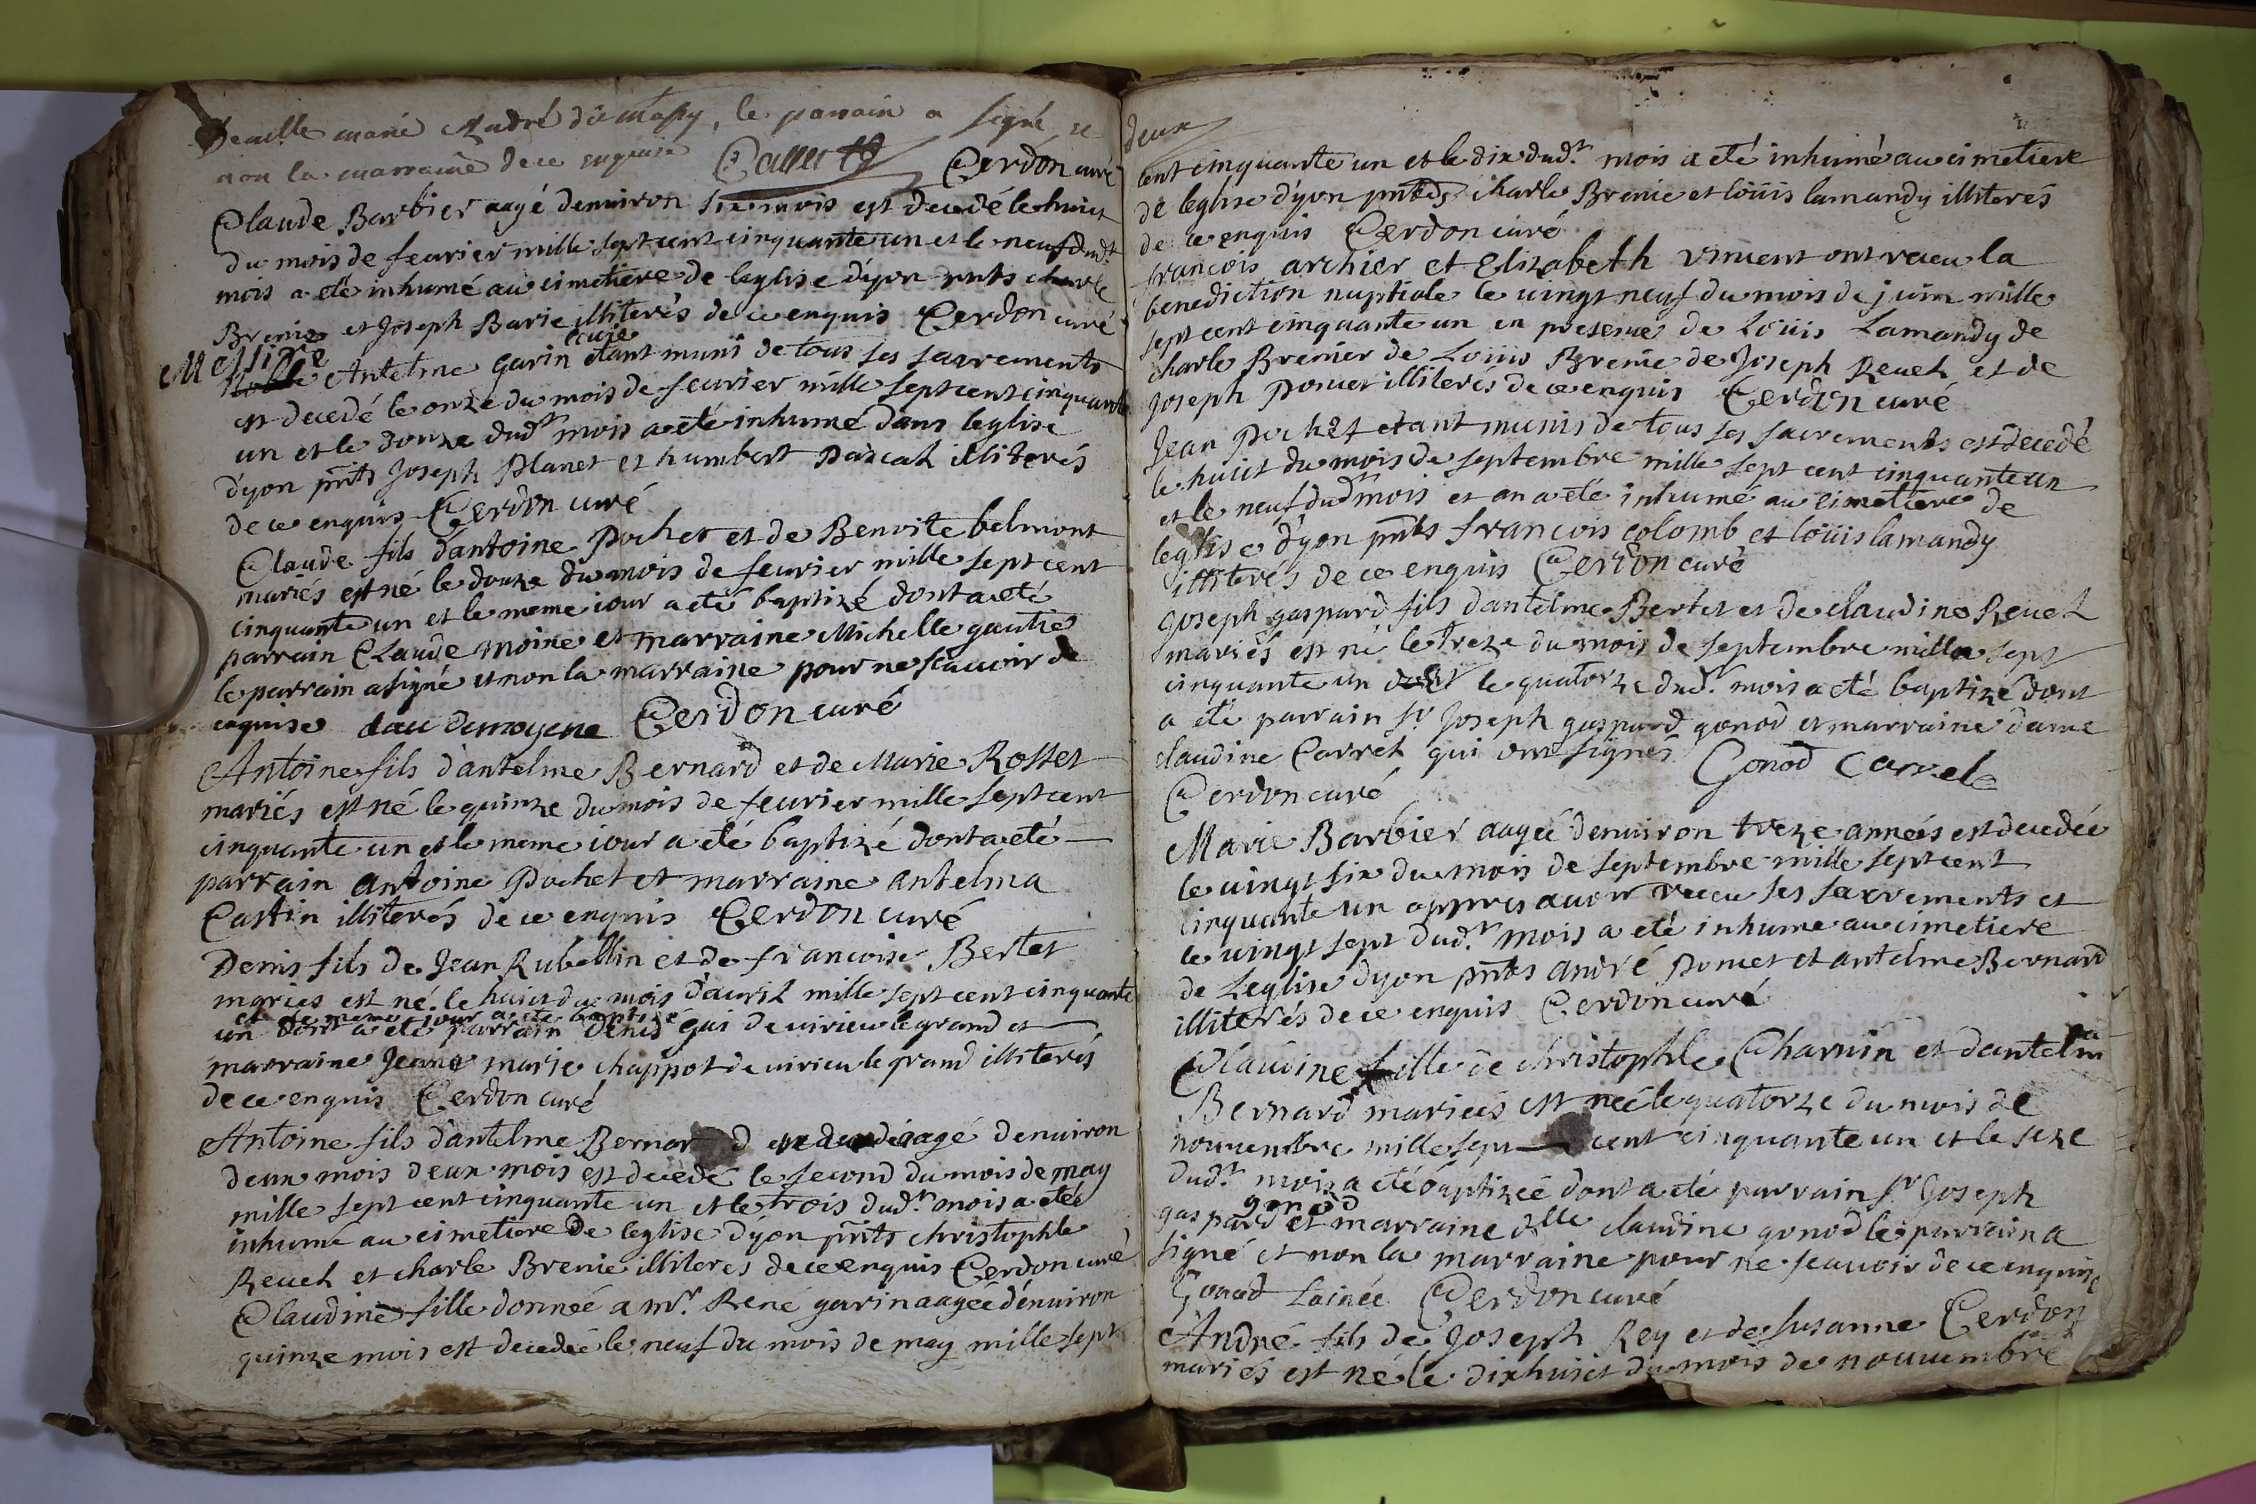 marié André dit, le parrain a signé et
non la marraine de ce enquise Cerdon curé
Claude Barbier aagé denuiron six mois est decedé le huict
du mois de feurier mille sept cent cinquante un et le neuf dudt
mois a eté inhumé au cimetiere de leglise d'yon pnts charle
Brenie et Joseph Barie illiterés de ce enquis Cerdon curé
Messire Antelme garin curé etant muni de tous ses sacrements
est decedé le onze du mois de feurier mille sept cent cinquante
un et le douze dudt mois a eté inhumé dans leglise
d'yon pnts Joseph Planet et humbert Pascal illiterés
de ce enquis Cerdon curé
Claude fils d'antoine Pochet et de Benoite belmont
mariés est né le douze du mois de feurier mille sept cent
cinquante un et le meme iour a eté baptizé dont a eté
parrain Claude moine et marraine Michelle gautie
le parrain a signé et non la marraine pour ne scauoir de
enquise Cerdon curé
Antoine fils d'antelme Bernard et de Marie Rosset
mariés est né le quinze du mois de feurier mille sept cent
cinquante un et le meme iour a eté baptizé dont a eté
parrain antoine Pochet et marraine antelma
Castin illiterés de ce enquis Cerdon curé
Denis fils de Jean Rubellin et de francoise Bertet
maries est né le huict du mois d'auril mille sept cent cinquante
et le meme jour a ete baptisé
un dont a eté parrain Denis gui de uirieu le grand et
marraine Jeane marie chappot de uirieu le grand illiterés
de ce enquis Cerdon curé
Antoine fils d'antelme Bernard aagé denuiron
deux mois deux mois est decedé le second du mois de may
mille sept cent cinquante un et le trois dudt mois a eté
inhumé au cimetiere de leglise d'yon pnts christophle
Reuel et charle Brenie illiteres de ce enquis Cerdon curé
Claudine fille donneé a mr René garin aageé denuiron
quinze mois est decedeé le neuf du mois de may mille sept
cent cinquante un et le dix dudt mois a eté inhumé au cimetiere
de leglise d'yon charle Brenie et loüis lamandy illiterés
de ce enquis Cerdon curé
francois archier et Elizabeth vincent ont receu la
benediction nuptiale le uingt neuf du mois de juin mille
sept cent cinquante un en presence de Loüis Lamandy de
charle Brenier de Loüis Brenie de Joseph Reuel et de
Joseph Poncet illiterés de ce enquis Cerdon curé
Jean Pochet etant munis de tous ses sacrements est decedé
le huict du mois de septembre mille sept cent cinquante un
et le neuf dudt mois et an a eté inhumé au cimetiere de
leglise d'yon pnts francois colomb et loüis lamandy
illiterés de ce enquis Cerdon curé
Joseph gaspard fils d'antelme Bertet et de claudine Reuel
mariés est né le treze du mois de septembre mille sept
cinquante un le quatorze dudt mois a eté baptizé dont
a eté parrain sr Joseph gaspard gonod et marraine dame
claudine Carrel qui ont signés Gonod Carrel
Cerdon curé
Marie Barbier aageé denuiron treze anneés est decedeé
le uingt six du mois de septembre mille sept cent
cinquante un appres auoir receu ses sacrements et
le uingt sept dudt mois a eté inhume au cimetiere
de Leglise dyon pnts andré Poncet et antelme Bernard
illiterés de ce enquis Cerdon curé
Claudine fille de christophle Charuin et dantelma
Bernard marieés est neé le quatorze du mois de
nouuembre mille sept cent cinquante un et le seze
dudt mois a eté baptizeé dont a eté parrain sr Joseph
gaspard gonod et marraine dlle claudine gonod le parrain a
signé et non la marraine pour ne scauoir de ce enquise
Gonod Lainée Cerdon curé
André fils de Joseph Rey et de Susanne Cerdon
mariés est né le dixhuict du mois de nouuembre